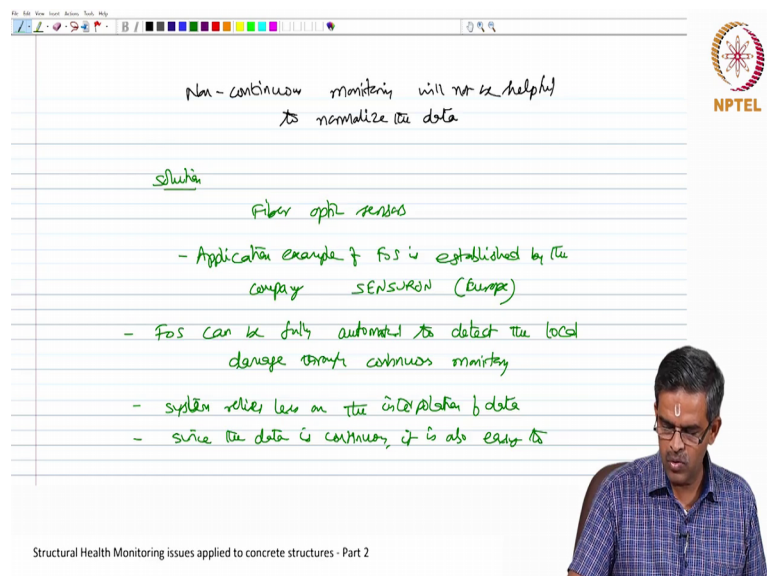 File Edit View Insert Actions Tools Help
Non-continuous monitoring will not be helpful
to normalize the data
NPTEL
solution
Fiber optic sensors
- Application example of FOS is established by the
company SENSURON (Europe)
- FOS can be fully automated to detect the local
damage through continuous monitoring
- system relies less on the interpolation of data
- since the data is continuous, it is also easy to
Structural Health Monitoring issues applied to concrete structures - Part 2